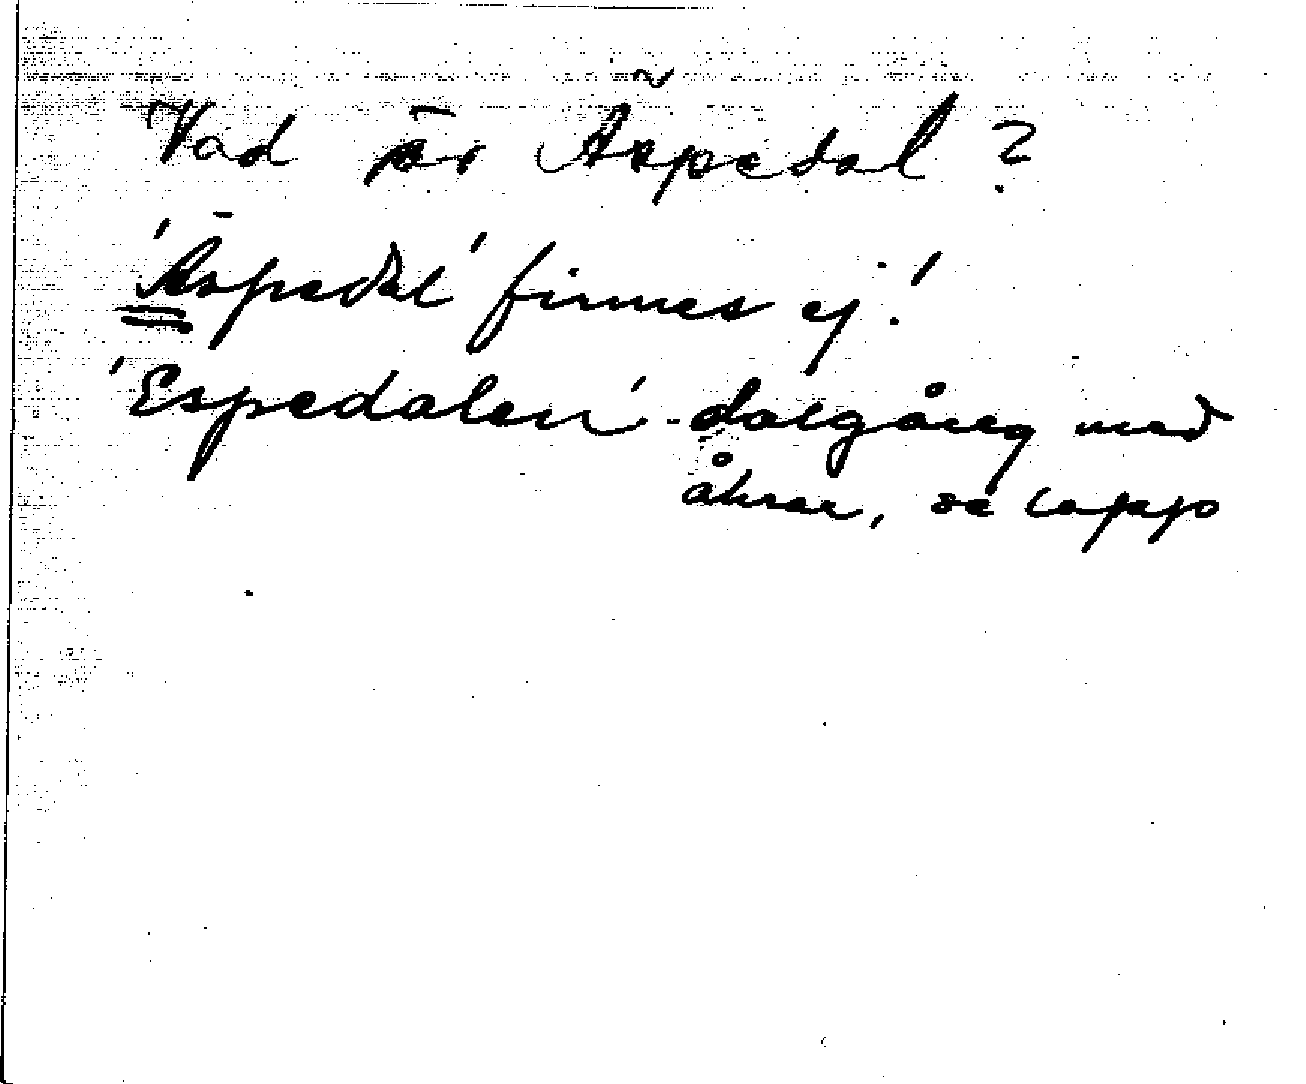 Vad är Äspedal?
'Äspedal' finnes ej!
'Espedalen' - dalgång med
åkrar, se lapp